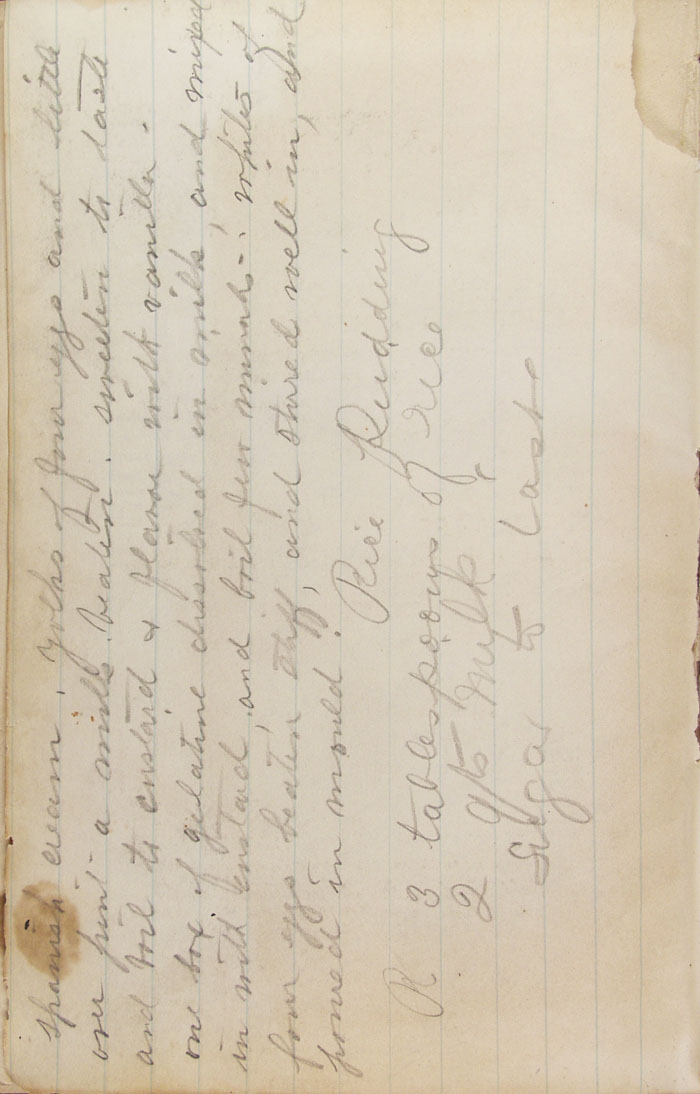 Spanish cream. Yolks of four eggs and little
over pint a milk, beaten. sweeten to taste
and boil to custard & flavor with vanilla.
one box of gelatine dissolved in milk, and mixed
in with custard, and boil few minuts -. whites of
four eggs beaten stiff, and stired well in, and
poured in mould.
Rice Pudding
R 3 tablespoons of rice
2 qts Milk
Sugar to taste